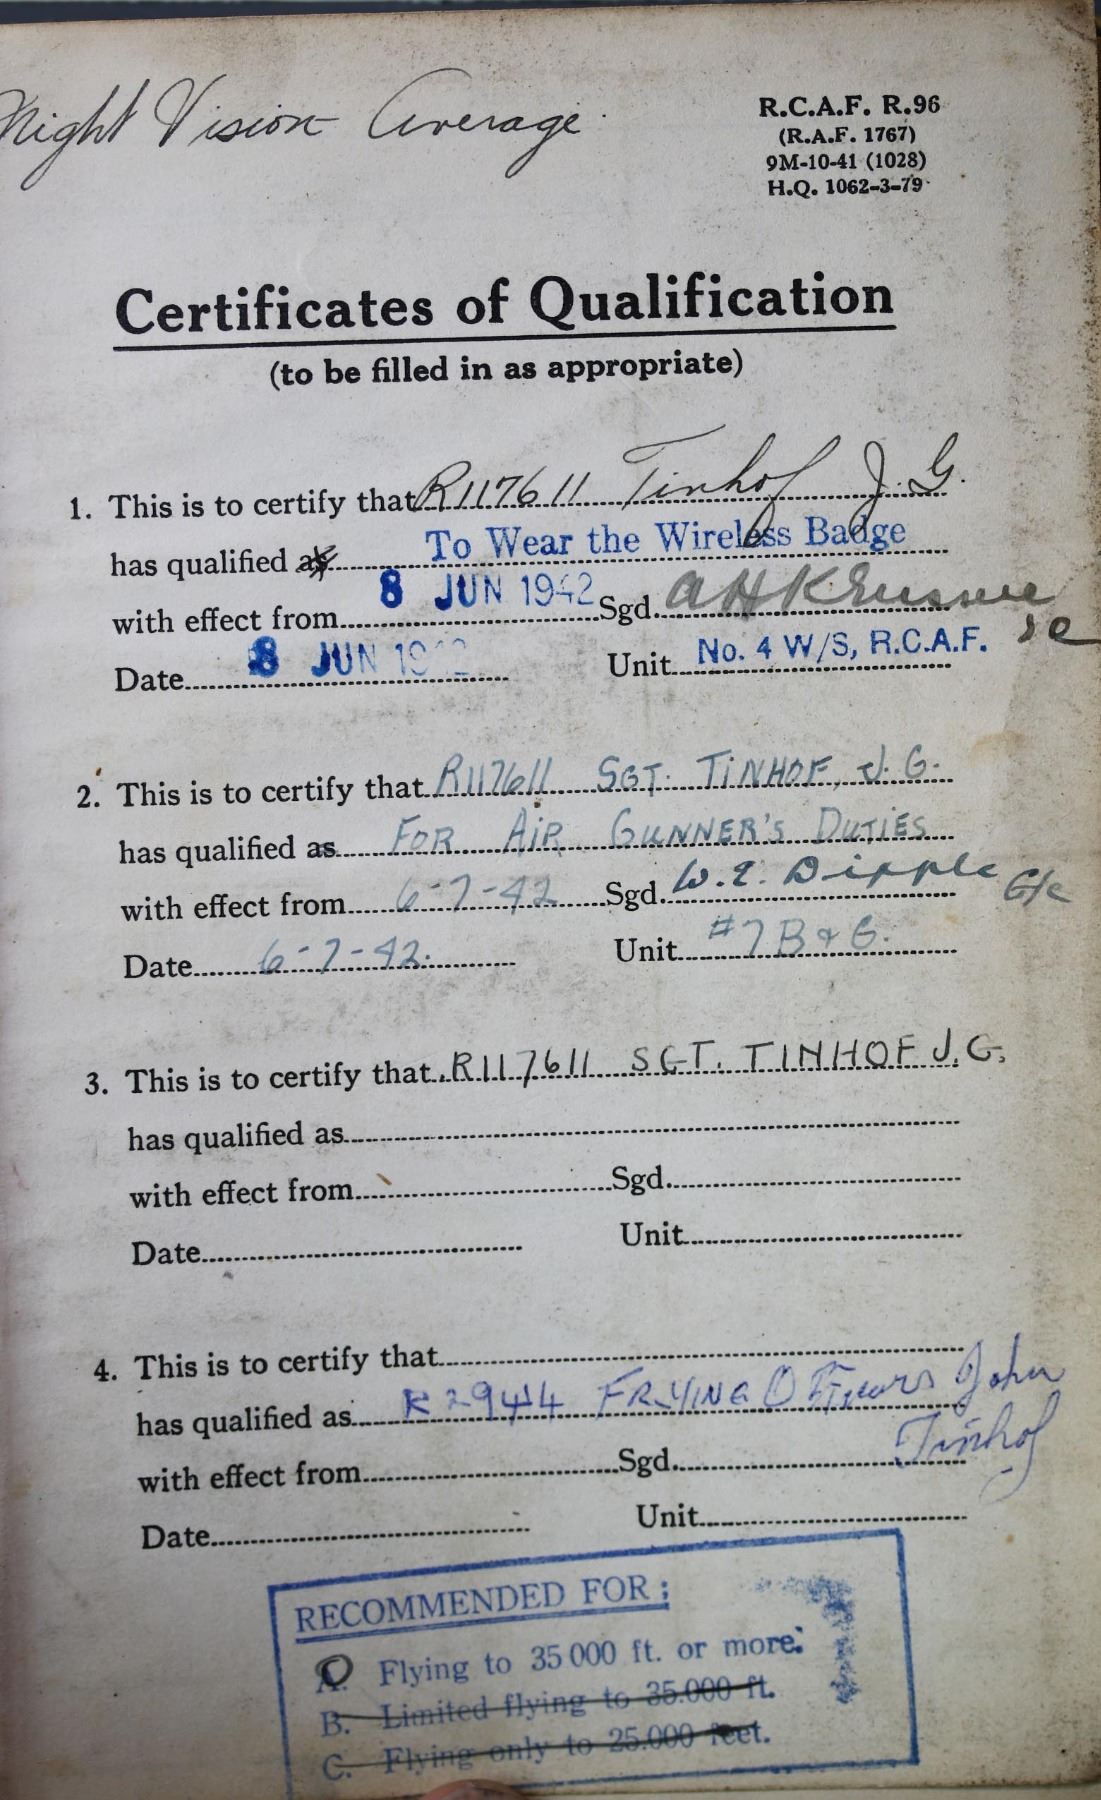 Night Vision Average.
R.C.A.F. R.96
(R.A.F. 1767)
9M-10-41 (1028)
H.Q. 1062-3-79
Certificates of Qualification
(to be filled in as appropriate)
1. This is to certify that R117611 Tinhof J. G.
has qualified as To Wear the Wireless Badge
with effect from 8 JUN 1942 Sgd.
Date 8 JUN 1942 Unit No. 4 W/S, R.C.A.F.
2. This is to certify that R117611 SGT. TINHOF, J. G.
has qualified as FOR AIR GUNNER'S DUTIES
with effect from 6-7-42 Sgd. W. E. Dipple G/C
Date 6-7-42. Unit #7 B & G.
3. This is to certify that R117611 SGT. TINHOF J. G.
has qualified as
with effect from Sgd.
Date Unit
4. This is to certify that
has qualified as John
with effect from Sgd. Tinhof
Date Unit
RECOMMENDED FOR:
A. Flying to 35000 ft. or more.
B. Limited flying to 35.000 ft.
C. Flying only to 25.000 feet.